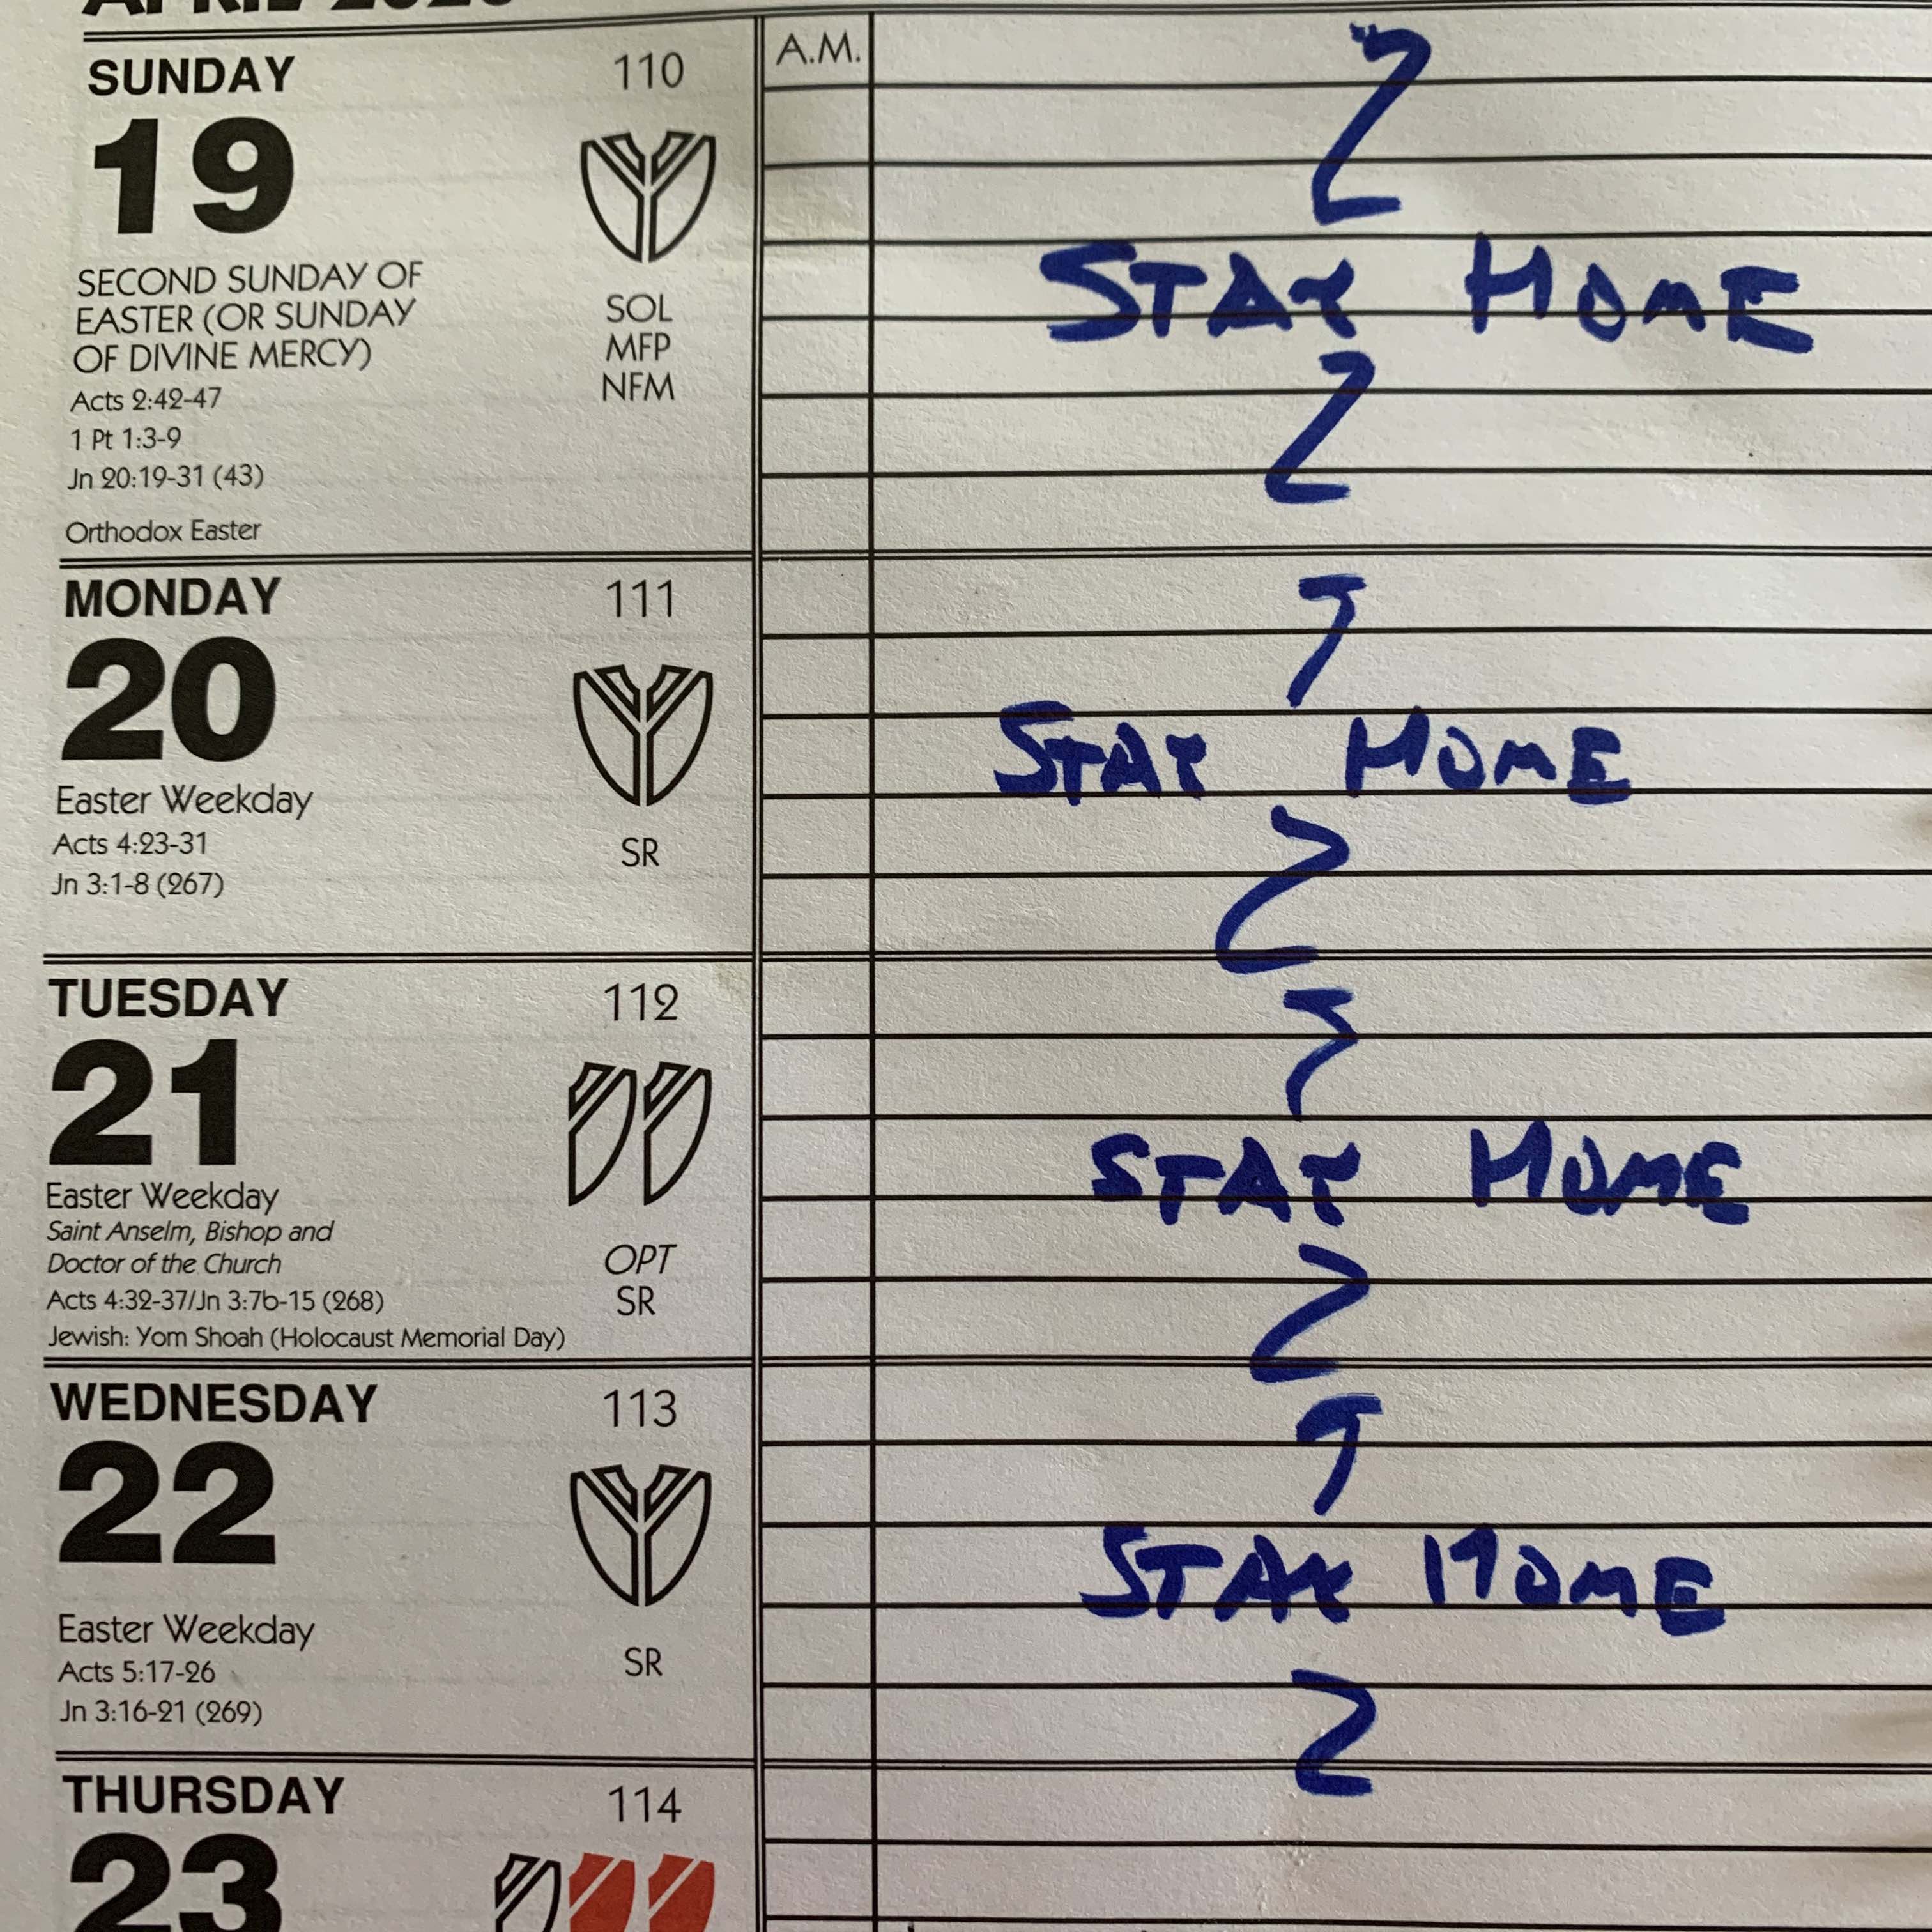 APRIL 2020
SUNDAY 110 A.M.
19
SECOND SUNDAY OF
EASTER (OR SUNDAY
OF DIVINE MERCY)
Acts 2:42-47
1 Pt 1:3-9
Jn 20:19-31 (43)
Orthodox Easter
SOL
MFP
NFM
STAY HOME
MONDAY 111
20
Easter Weekday
Acts 4:23-31
Jn 3:1-8 (267)
SR
STAY HOME
TUESDAY 112
21
Easter Weekday
Saint Anselm, Bishop and
Doctor of the Church
Acts 4:32-37/Jn 3:7b-15 (268)
Jewish: Yom Shoah (Holocaust Memorial Day)
OPT
SR
STAY HOME
WEDNESDAY 113
22
Easter Weekday
Acts 5:17-26
Jn 3:16-21 (269)
SR
STAY HOME
THURSDAY 114
23